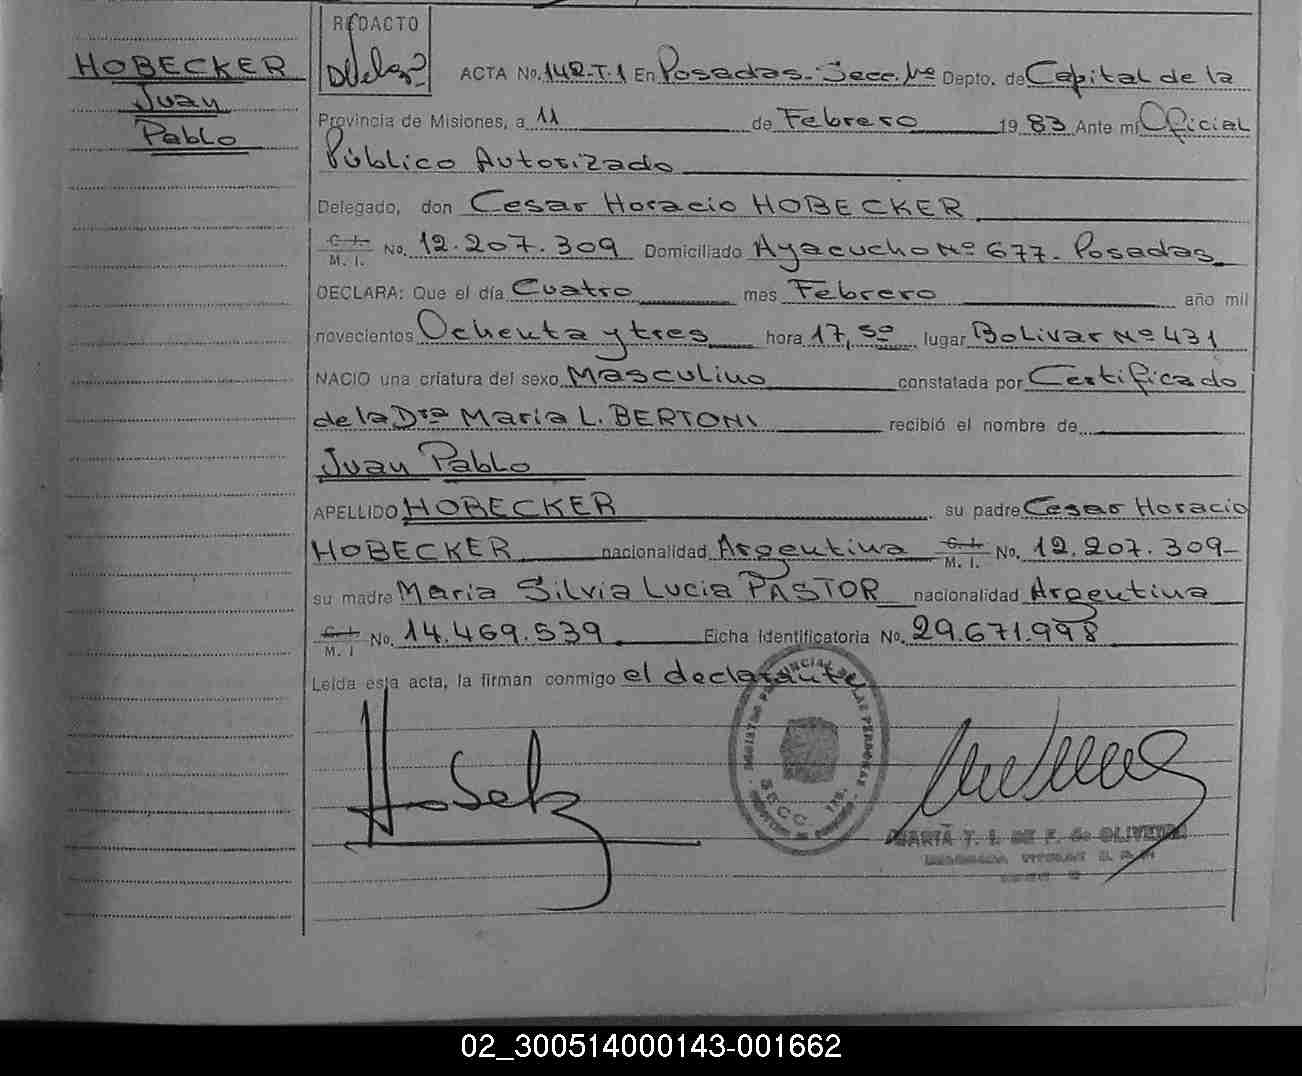 HOBECKER
Juan
Pablo
REDACTO
ACTA No. 142-T.1 En Posadas-Secc. 1ª Depto. de Capital de la
Provincia de Misiones, a 11 de Febrero 19 83 Ante mi Oficial
Público Autorizado
Delegado, don Cesar Horacio HOBECKER
C. I.
M. I. No. 12.207.309 Domiciliado Ayacucho Nº 677- Posadas
DECLARA: Que el día Cuatro mes Febrero año mil
novecientos Ochenta y tres hora 17,50 lugar Bolivar Nº 431
NACIO una criatura del sexo Masculino constatada por Certificado
de la Dra Maria L. BERTONI recibió el nombre de
Juan Pablo
APELLIDO HOBECKER su padre Cesar Horacio
HOBECKER nacionalidad Argentina C. I.
M. I. No. 12.207.309-
su madre Maria Silvia Lucia PASTOR nacionalidad Argentina
C. I.
M. I No. 14.469.539 Ficha Identificatoria No. 29.671.998
Leída esta acta, la firman conmigo el declarante
REGISTRO PROVINCIAL DE LAS PERSONAS
SECC. 1ra.
MARIA T. DE F. de OLIVEIRA
02_300514000143-001662